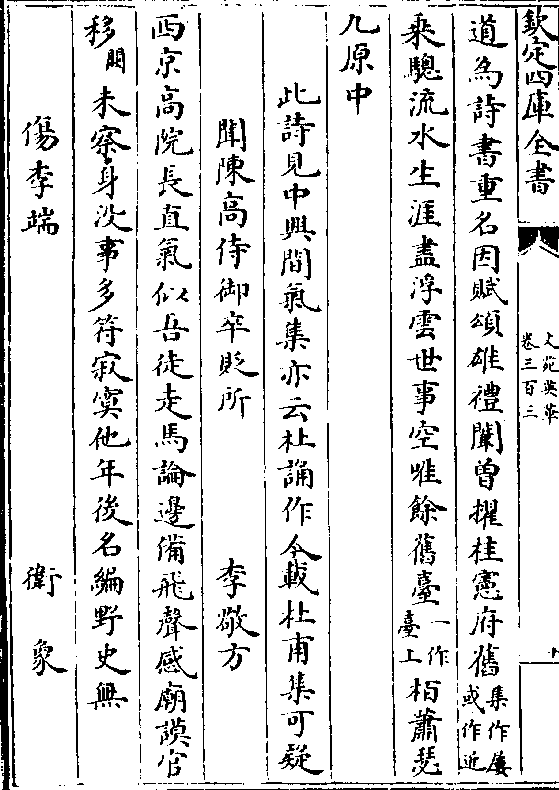 欽定四庫全書
文苑英華
卷三百三
十
道為詩書重名因賦頌雄禮闈曽擢桂憲府舊集作屢或作近
乗驄流水生涯盡浮雲世事空唯餘舊臺一作臺上栢蕭瑟
九原中
此詩見中興間氣集亦云杜誦作今載杜甫集可疑
聞陳高侍御卒貶所
李敬方
西京高院長直氣似吾徒走馬論邊備飛聲感廟謨官
移闕未察身没事多符寂寞他年後名編野史無
傷李端
衛象